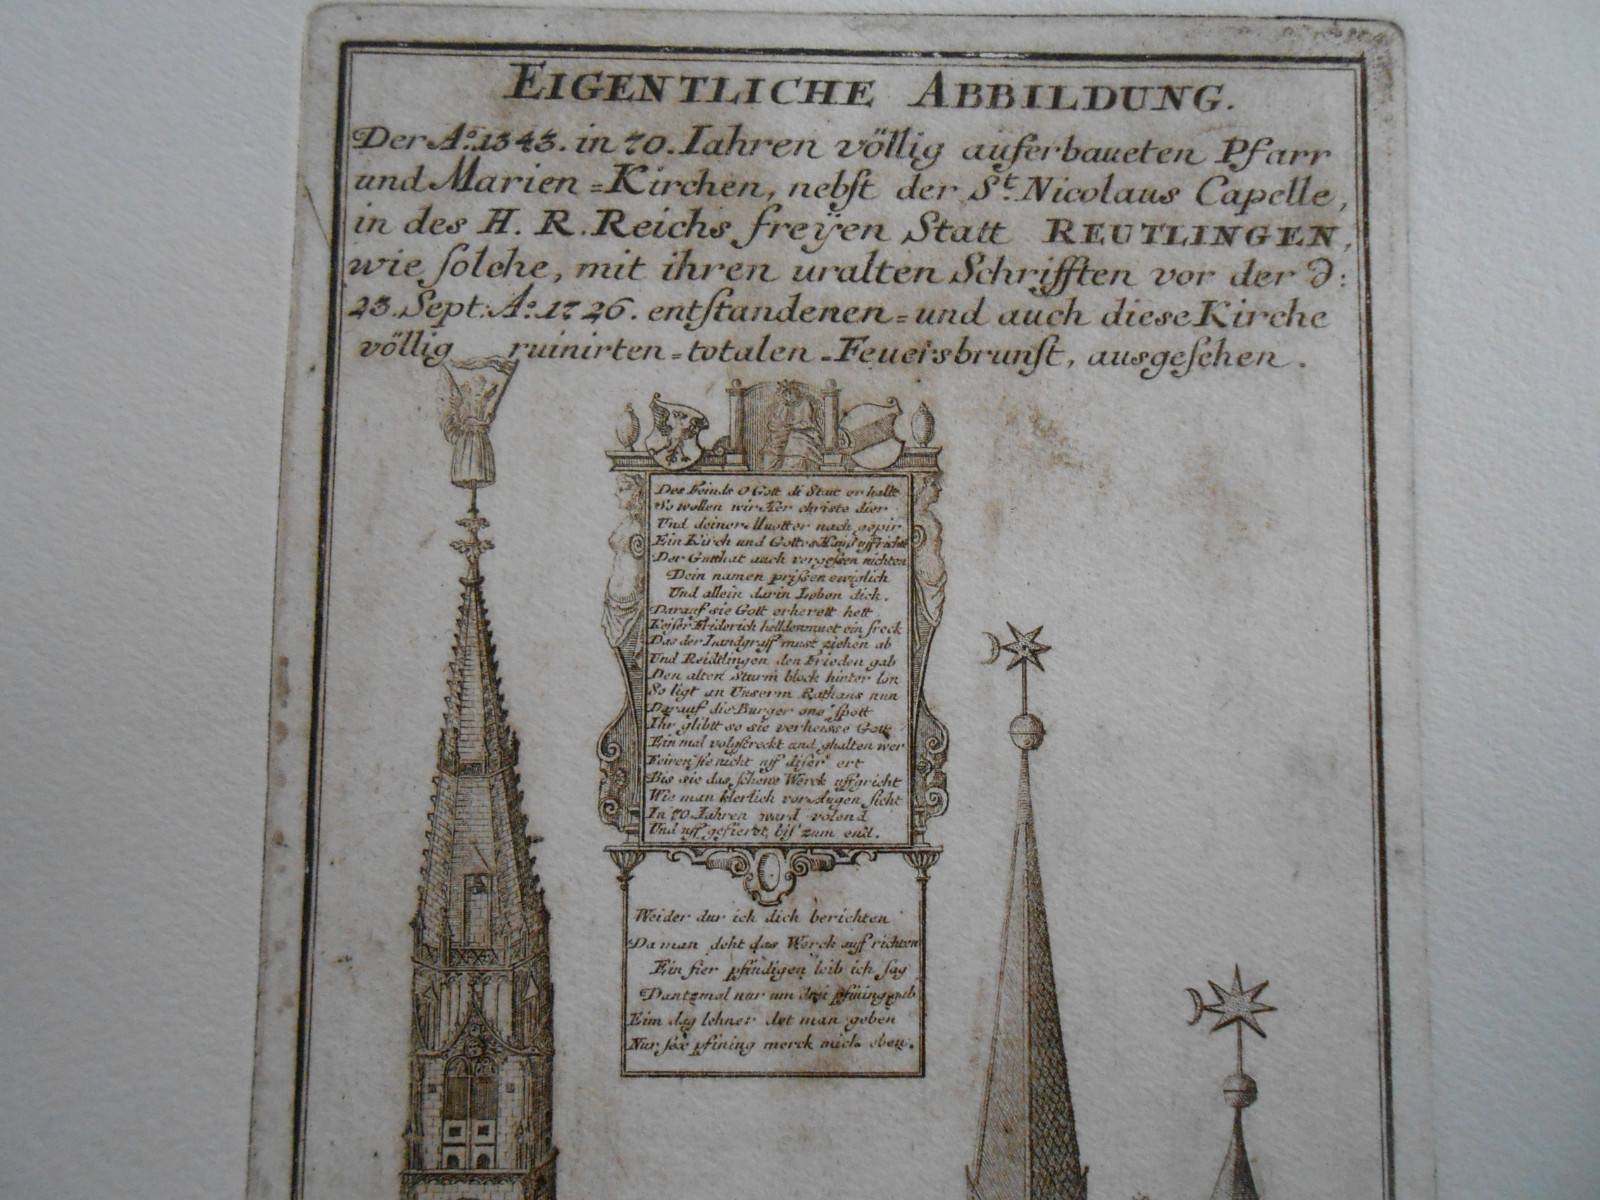 EIGENTLICHE ABBILDUNG.
Der Aº. 1343. in 70. Iahren völlig auferbaueten Pfarr
und Marien=Kirchen, nebſt der St. Nicolaus Capelle,
in des H. R. Reichs freÿen Statt REUTLINGEN,
wie ſolche, mit ihren uralten Schrifften vor der d:
23. Sept: Aº. 1726. entſtandenen=und auch dieſe Kirche
völlig ruinirten=totalen=Feuersbrunſt, ausgeſehen.
Des Feinds o Gott di Statt erhallt
So wollen wir Her christe dier
Und deiner Muotter nach gepir
Ein Kirch und Gottes Hauſ uffricht
Der Gutthat auch vergeſsen nichten
Dein namen priſsen ewiglich
Und allein darin Loben dich.
Darauf sie Gott erherett hett
Keiſer Friderich helldenmuet ein ſreck
Das der Landgraff must ziehen ab
Und Reidtlingen den Frieden gab
Den alten Sturm block hinter lon
So ligt an Unserm Rathaus nun
Darauf die Burger one ſpott
Ihr glibtt so sie verheisse Gott
Ein mal volgſtreckt und ghalten wer
Feiren ſie nicht uff diſer ert
Bis sie das ſchone Werck uffgricht
Wie man klerlich vor Augen ſicht
In 70. Iahren ward volend
Und uff gefierdt, biſ zum end.
Weider dur ich dich berichten
Da man deht das Werck auff richten
Ein fier pfindigen leib ich ſag
Dantzmal nur um drei pfining gab
Eim dag lehner det man geben
Nur ſex pfining merck mich eben.